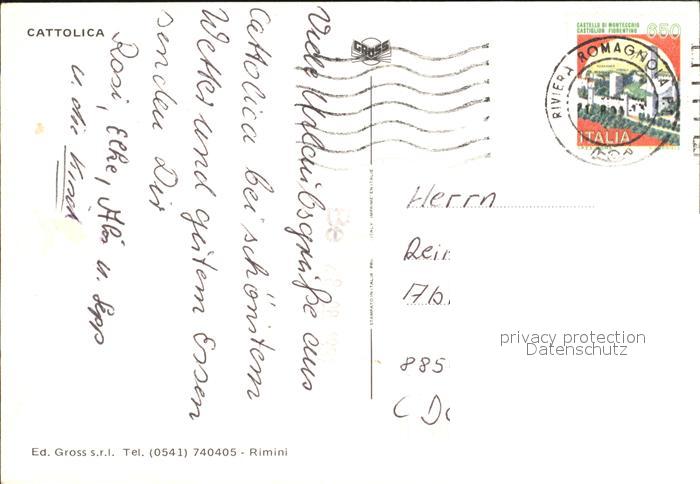 CATTOLICA
Viele Urlaubsgrüße aus
Cattolica bei schönstem
Wetter und gutem Essen
senden Dir
Rosi, Elke, Alois u. Sepp
u. die Kinder
GROSS
STAMPATO IN ITALIA
ITALY IMPRIMÉ EN ITALIE
CASTELLO DI MONTECCHIO
CASTIGLION FIORENTINO
650
ITALIA
RIVIERA ROMAGNOLA
Herrn
885
privacy protection
Datenschutz
Ed. Gross s.r.l. Tel. (0541) 740405 - Rimini